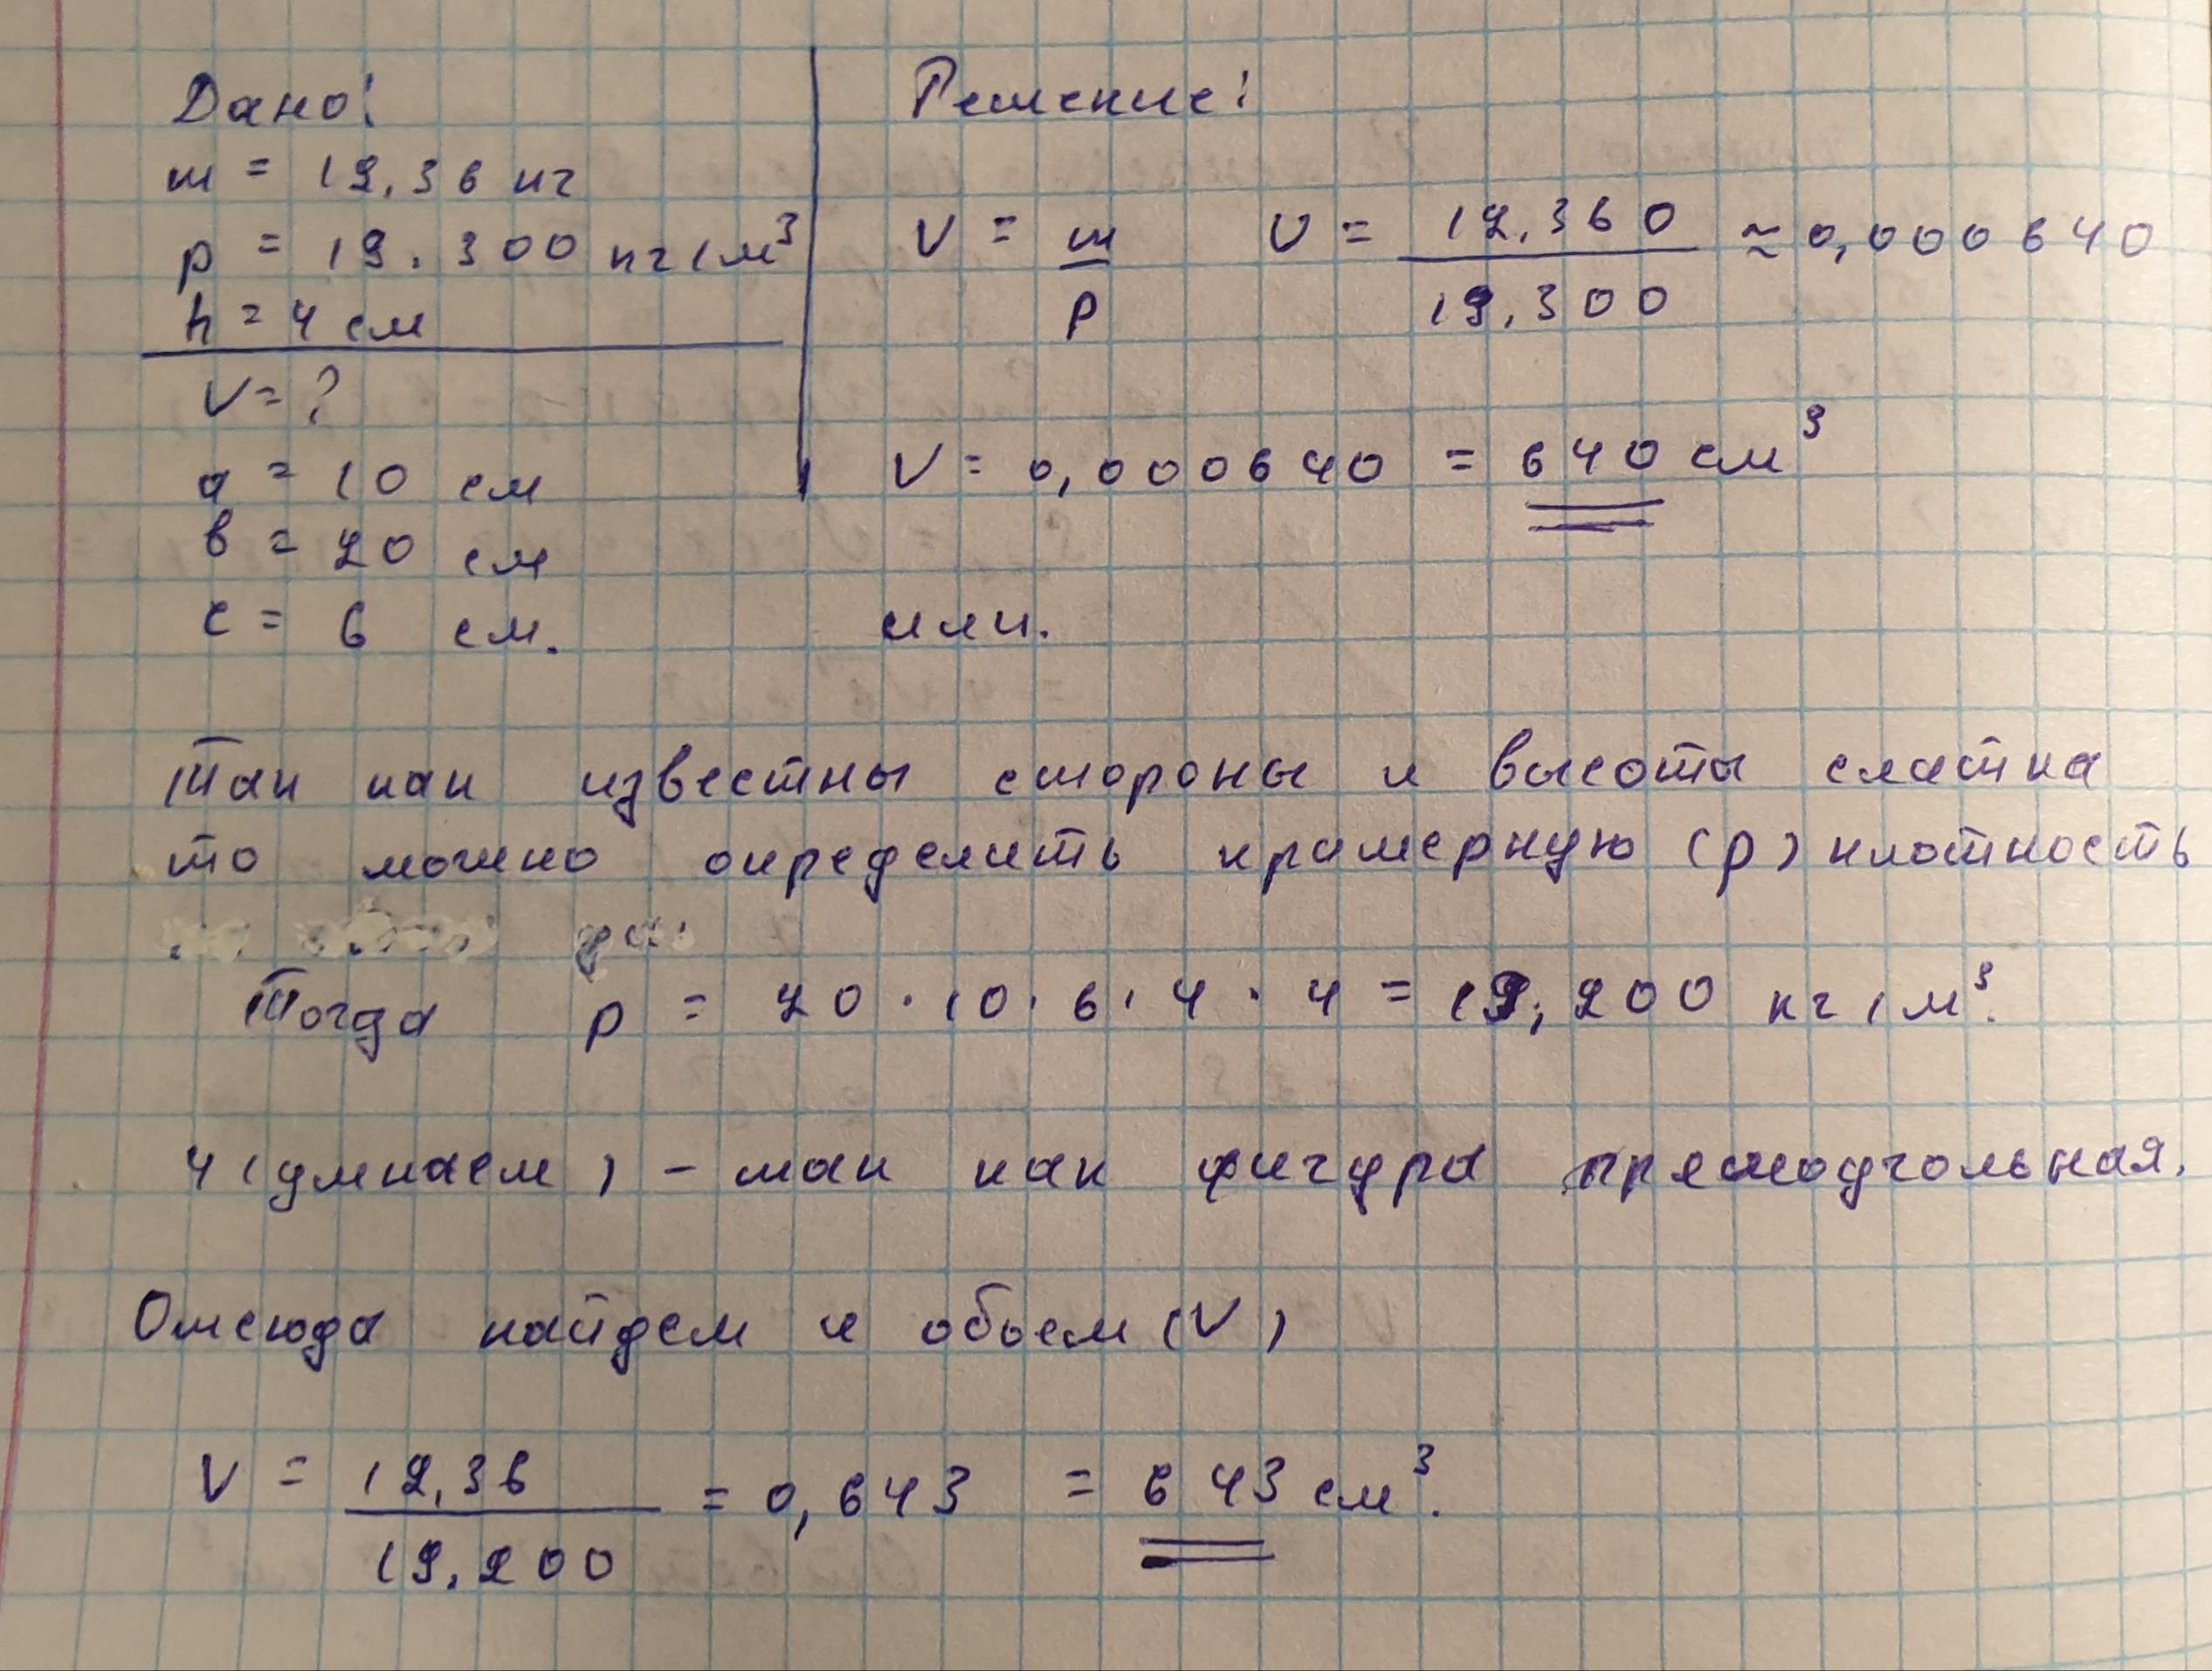 Дано:
m = 12,36 кг
p = 19.300 кг/м³
h = 4 см
V = ?
a = 10 см
в = 20 см
c = 6 см.
Решение:
V = m/p V = 12,360/19,300 ≈ 0,000640
V = 0,000640 = 640 см³
или.
Так как известны стороны и высота слитка
то можно определить примерную (p) плотность
Тогда p = 20 · 10 · 6 · 4 · 4 = 19,200 кг/м³.
4 (умнаем) - так как фигура прямоугольная.
Отсюда найдем и обьем (V)
V = 12,36/19,200 = 0,643 = 643 см³.